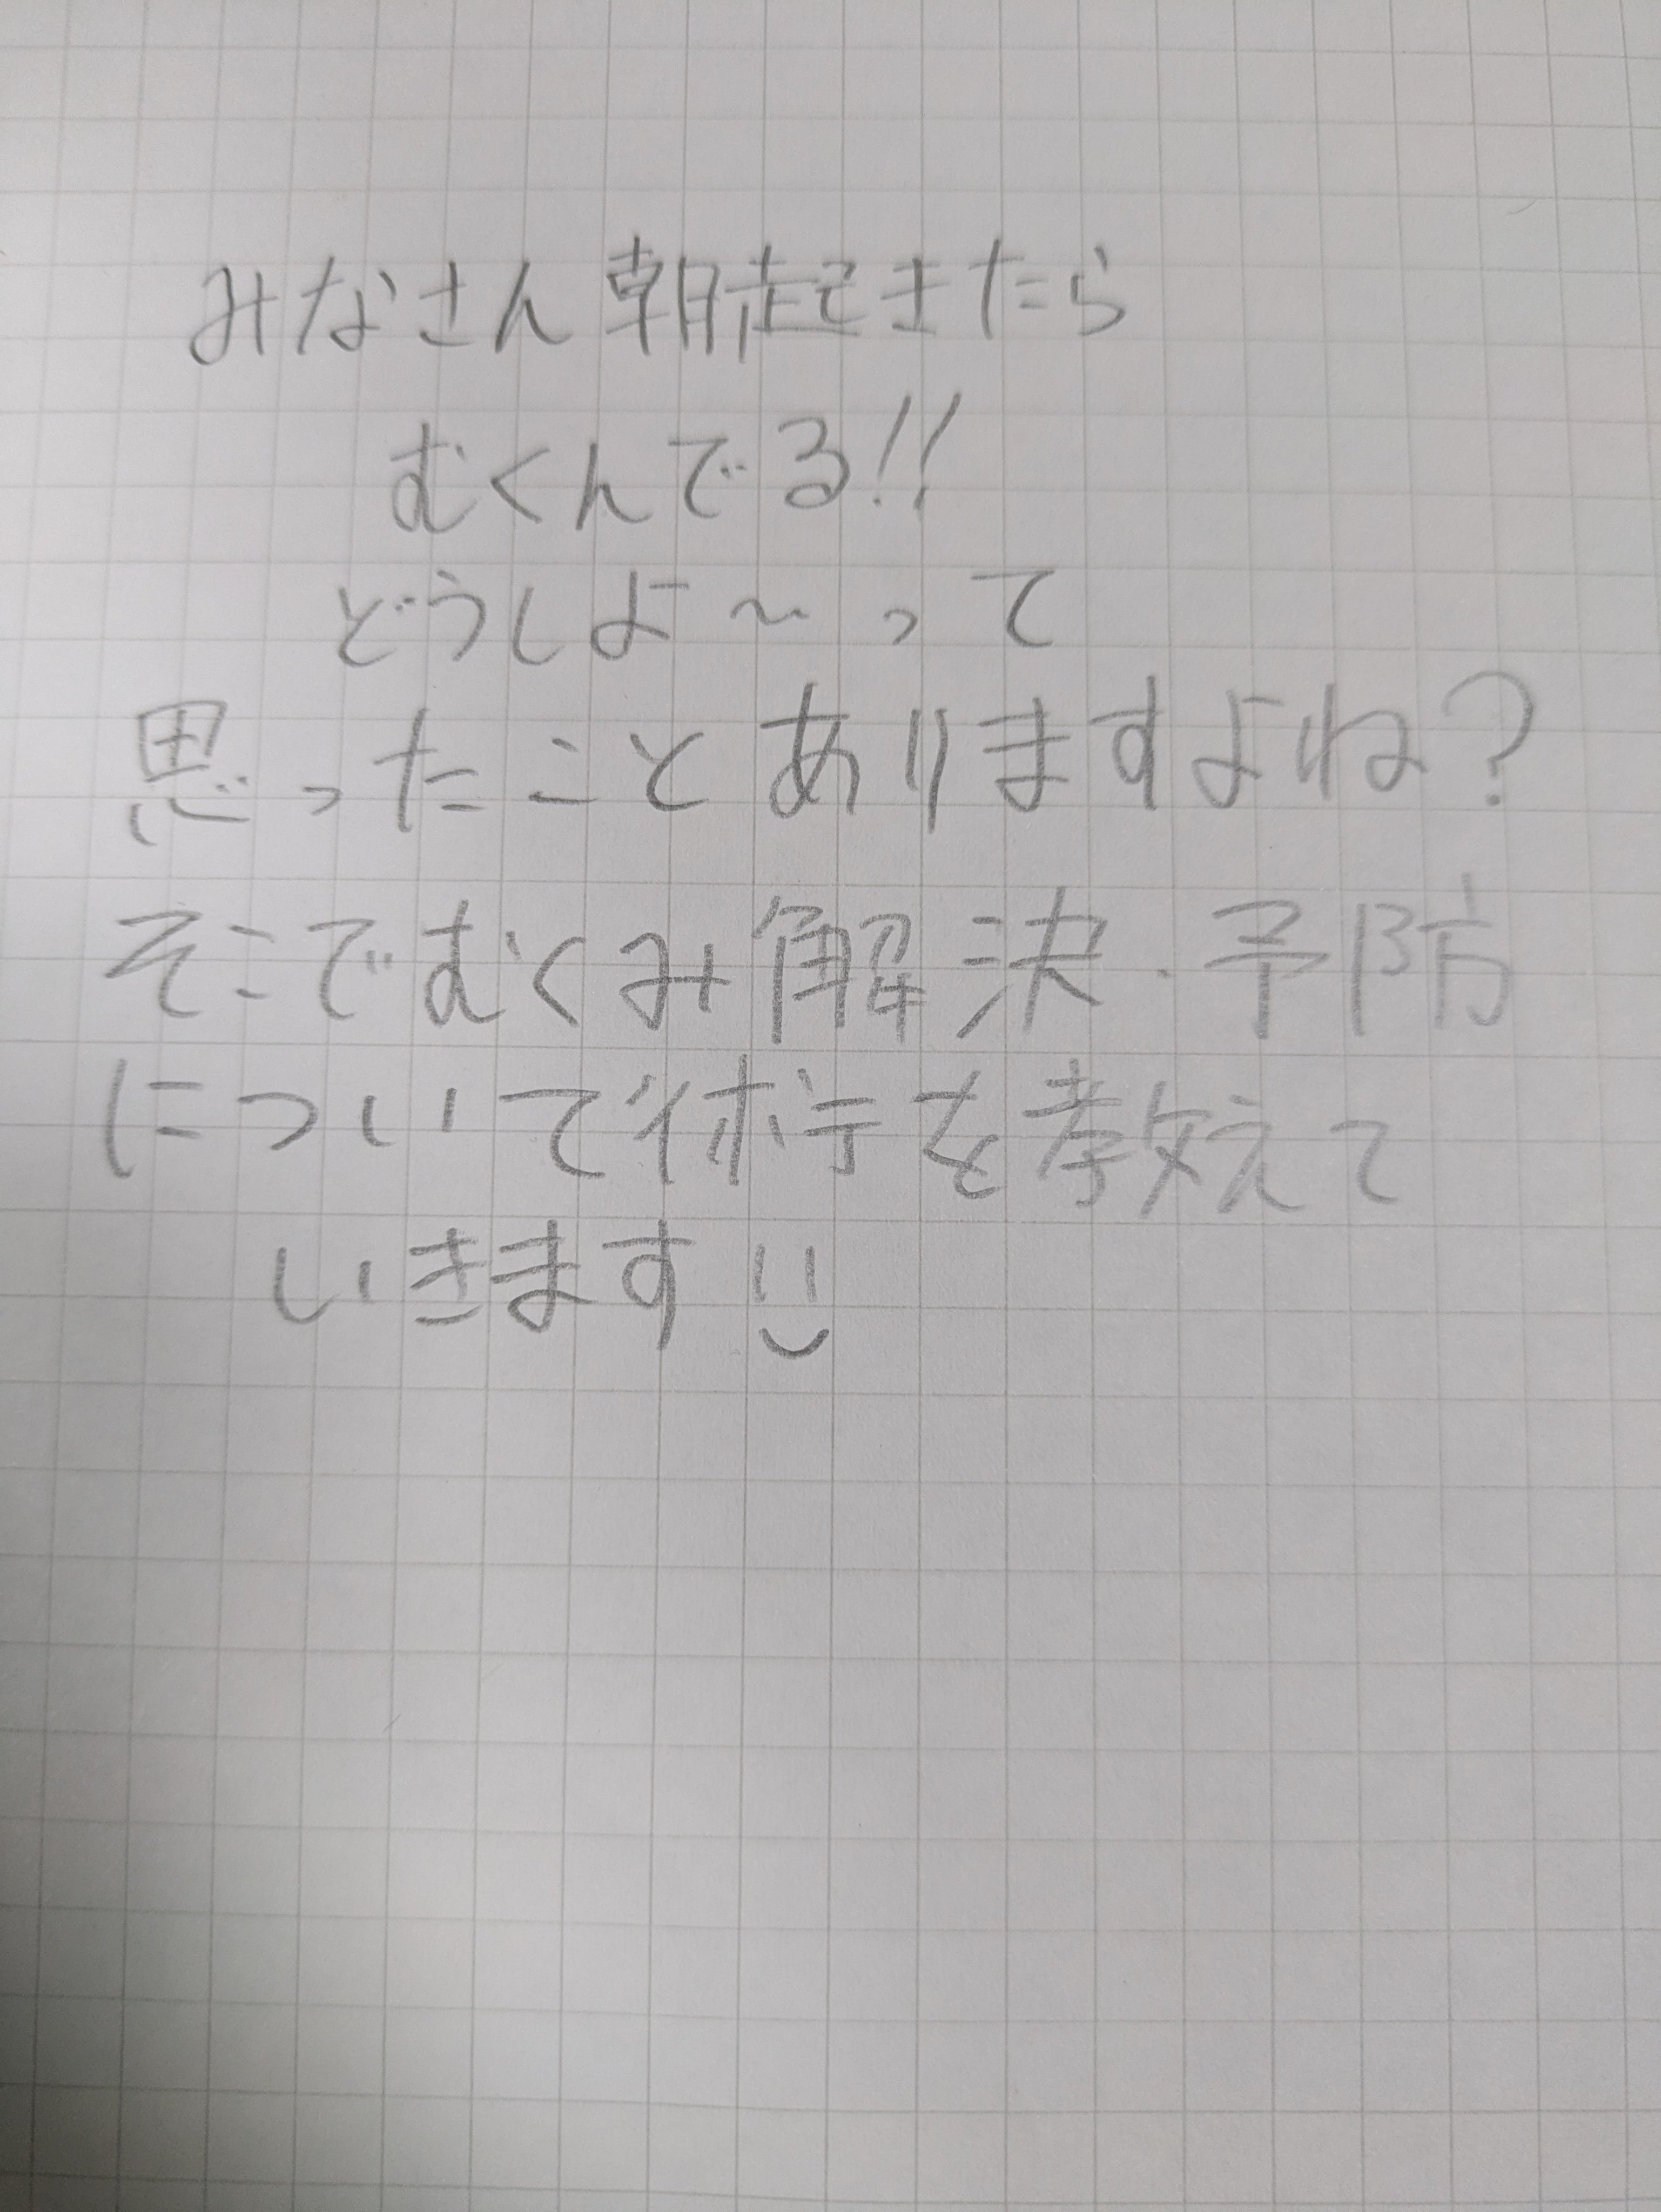 みなさん朝起きたら
むくんでる!!
どうしよ～って
思ったことありますよね?
そこでむくみ解決・予防
について術を教えて
いきます